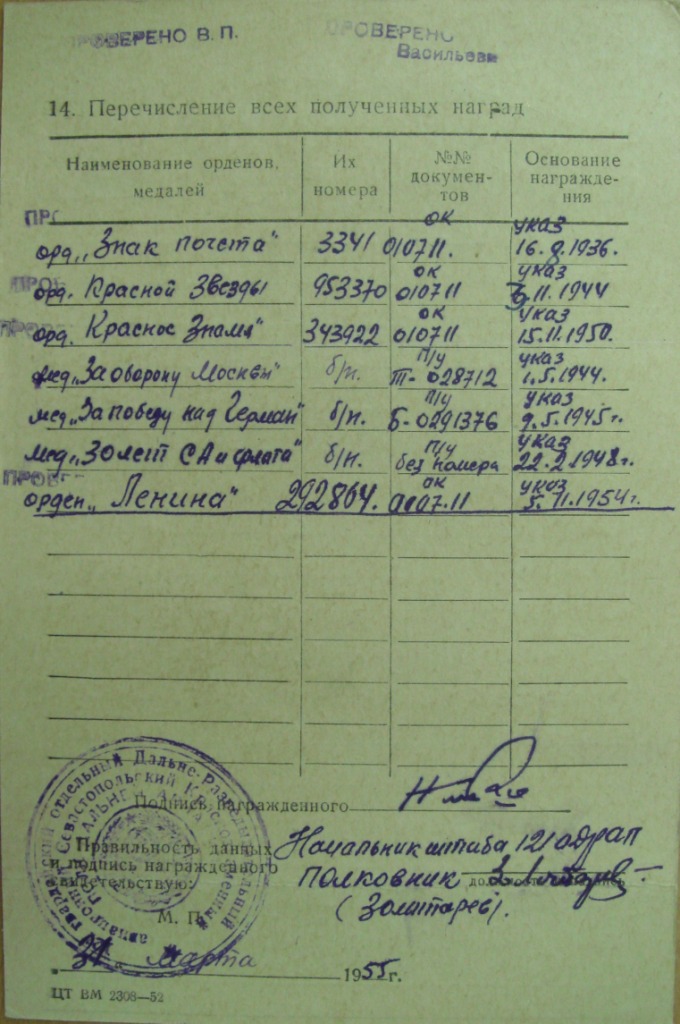 ПРОВЕРЕНО В. П.
ПРОВЕРЕНО
Васильева
14. Перечисление всех полученных наград
Наименование орденов, медалей
Их номера
№№ докумен-тов
Основание награжде-ния
ПРО
орд. „Знак почета" 3341 ОК 010711. указ 16.8.1936.
ПРОВ
орд. Красной Звезды 953370 ОК 010711 указ 3.11.1944
ПРО
орд. Красное Знамя" 343922 ОК 010711 указ 15.11.1950.
мед „За оборону Москвы" б/н. П/у Т-028712 указ 1.5.1944.
мед „За победу над Герман" б/н. П/у Б-0291376 указ 9.5.1945г.
мед „30 лет СА и флота" б/н. П/у без номера указ 22.2.1948г.
ПРОВЕ
орден „Ленина" 292864. ОК 010711 указ 5.11.1954г.
Подпись награжденного
Правильность данных
и подпись награжденного
свидетельствую:
Начальник штаба 121 одрап
полковник
(Золотарев).
М. П.
31 " Марта 1955 г.
ЦТ ВМ 2308—52